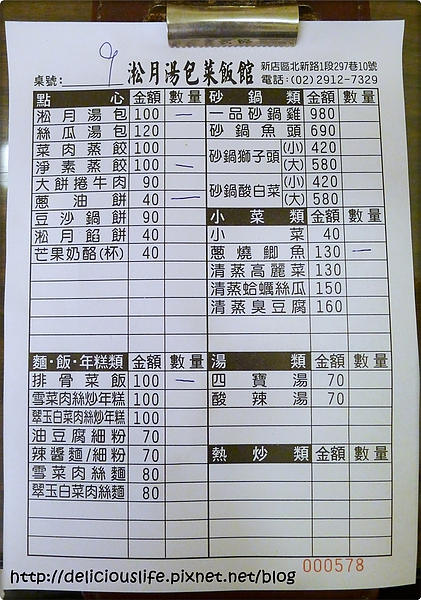 淞月湯包菜飯館
新店區北新路1段297巷10號
電話:(02)2912-7329
桌號: 9
點心 金額 數量
淞月湯包 100 一
絲瓜湯包 120
菜肉蒸餃 100
淨素蒸餃 100 一
大餅捲牛肉 90
蔥油餅 40 一
豆沙鍋餅 90
淞月餡餅 40
芒果奶酪(杯) 40
麵·飯·年糕類 金額 數量
排骨菜飯 100 一
雪菜肉絲炒年糕 100
翠玉白菜肉絲炒年糕 100
油豆腐細粉 70
辣醬麵/細粉 70
雪菜肉絲麵 80
翠玉白菜肉絲麵 80
砂鍋類 金額 數量
一品砂鍋雞 980
砂鍋魚頭 690
砂鍋獅子頭 (小) 420
(大) 580
砂鍋酸白菜 (小) 420
(大) 580
小菜類 金額 數量
小菜 40
蔥燒鯽魚 130 一
清蒸高麗菜 130
清蒸蛤蠣絲瓜 150
清蒸臭豆腐 160
湯類 金額 數量
四寶湯 70
酸辣湯 70
熱炒類 金額 數量
000578
http://deliciouslife.pixnet.net/blog